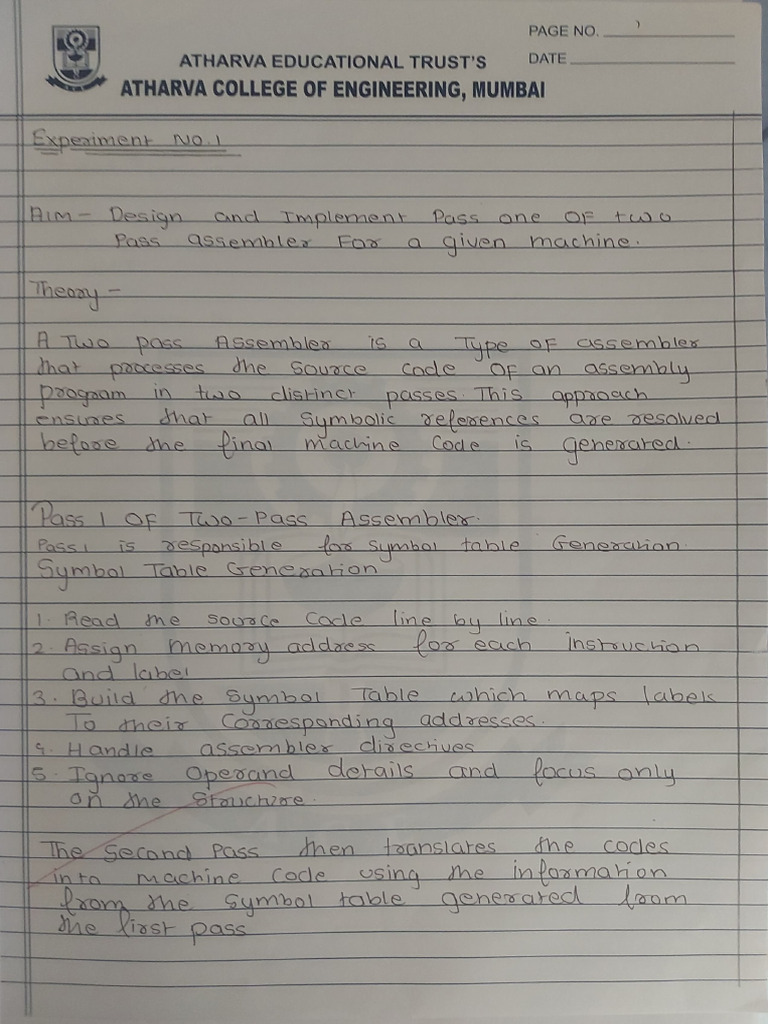 PAGE NO.
ATHARVA EDUCATIONAL TRUST'S
DATE
ATHARVA COLLEGE OF ENGINEERING, MUMBAI
Experiment No.1
AIM - Design and Implement Pass one OF two
Pass assembler For a given machine.
Theory -
A Two pass Assembler is a Type OF assembler
that processes the source code OF an assembly
program in two distinct passes. This approach
ensures that all symbolic references are resolved
before the final machine code is generated.
Pass 1 OF Two-Pass Assembler.
Pass1 is responsible for symbol table Generation.
Symbol Table Generation
1. Read the source Code line by line.
2. Assign memory address for each instruction
and label
3. Build the Symbol Table which maps labels
To their Corresponding addresses.
4. Handle assembler directives
5. Ignore Operand details and focus only
on the Structure.
The Second Pass then translates the codes
into machine code using the information
from the symbol table generated from
the first pass